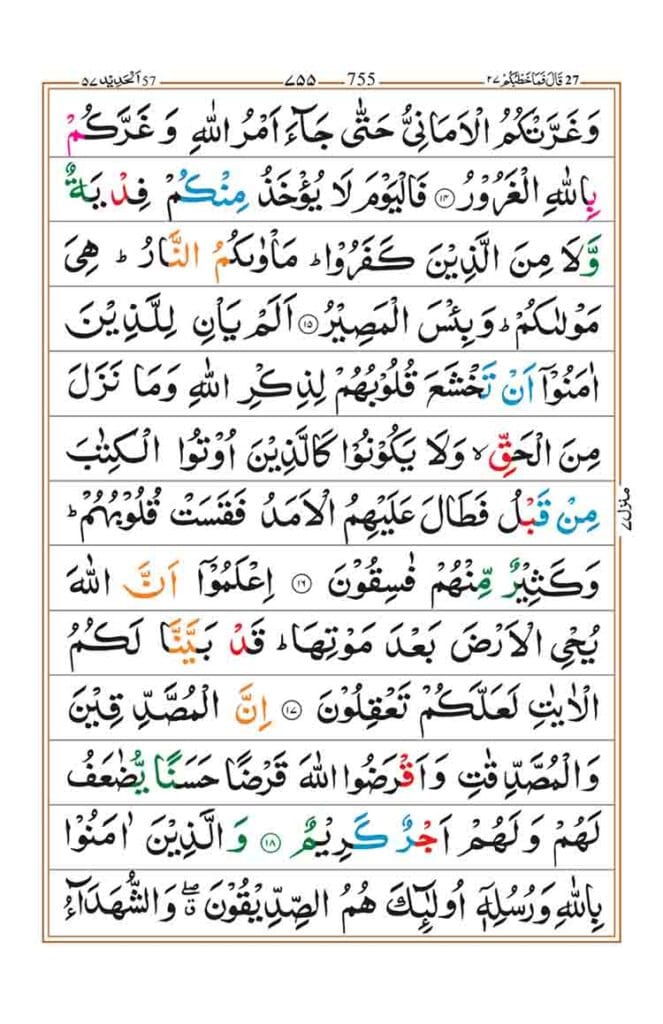 27 قَالَ فَمَا خَطْبُكُمْ ٢٧ 755 ٧٥٥ 57 اَلْحَدِيْد ٥٧
وَ غَرَّتْكُمُ الْاَمَانِىُّ حَتّٰى جَآءَ اَمْرُ اللّٰهِ وَ غَرَّكُمْ
بِاللّٰهِ الْغَرُوْرُ ١٤ فَالْيَوْمَ لَا يُؤْخَذُ مِنْكُمْ فِدْيَةٌ
وَّلَا مِنَ الَّذِيْنَ كَفَرُوْا ؕ مَاْوٰىكُمُ النَّارُ ؕ هِىَ
مَوْلٰىكُمْ ؕ وَ بِئْسَ الْمَصِيْرُ ١٥ اَلَمْ يَاْنِ لِلَّذِيْنَ
اٰمَنُوْۤا اَنْ تَخْشَعَ قُلُوْبُهُمْ لِذِكْرِ اللّٰهِ وَمَا نَزَلَ
مِنَ الْحَقِّ ۙ وَلَا يَكُوْنُوْا كَالَّذِيْنَ اُوْتُوا الْكِتٰبَ
مِنْ قَبْلُ فَطَالَ عَلَيْهِمُ الْاَمَدُ فَقَسَتْ قُلُوْبُهُمْ ؕ
وَكَثِيْرٌ مِّنْهُمْ فٰسِقُوْنَ ١٦ اِعْلَمُوْۤا اَنَّ اللّٰهَ
يُحْىِ الْاَرْضَ بَعْدَ مَوْتِهَا ؕ قَدْ بَيَّنَّا لَكُمُ
الْاٰيٰتِ لَعَلَّكُمْ تَعْقِلُوْنَ ١٧ اِنَّ الْمُصَّدِّقِيْنَ
وَالْمُصَّدِّقٰتِ وَاَقْرَضُوا اللّٰهَ قَرْضًا حَسَنًا يُّضٰعَفُ
لَهُمْ وَلَهُمْ اَجْرٌ كَرِيْمٌ ١٨ وَ الَّذِيْنَ اٰمَنُوْا
بِاللّٰهِ وَرُسُلِهٖۤ اُولٰٓئِكَ هُمُ الصِّدِّيْقُوْنَ ۖ ۗ وَالشُّهَدَآءُ
منزل ٧